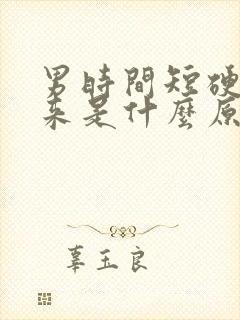 男時間短硬
来是什麼原
辜玉良